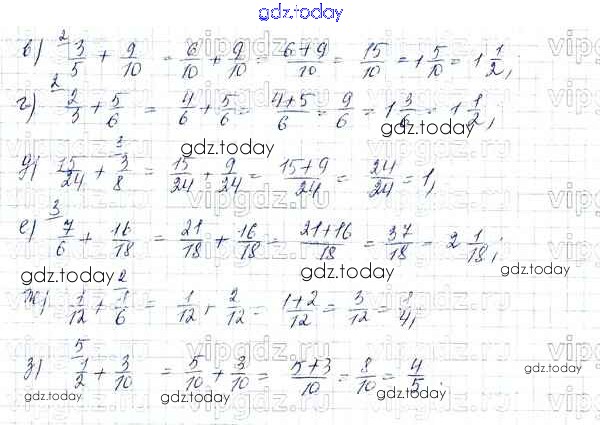 gdz.today
в) 3/5 + 9/10 = 6/10 + 9/10 = 6+9/10 = 15/10 = 1 5/10 = 1 1/2;
г) 2/3 + 5/6 = 4/6 + 5/6 = 4+5/6 = 9/6 = 1 3/6 = 1 1/2;
gdz.today
gdz.today
д) 15/24 + 3/8 = 15/24 + 9/24 = 15+9/24 = 24/24 = 1,
е) 7/6 + 16/18 = 21/18 + 16/18 = 21+16/18 = 37/18 = 2 1/18;
gdz.today
gdz.today
gdz.today
ж) 1/12 + 1/6 = 1/12 + 2/12 = 1+2/12 = 3/12 = 1/4,
з) 1/2 + 3/10 = 5/10 + 3/10 = 5+3/10 = 8/10 = 4/5;
gdz.today
gdz.today
gdz.today